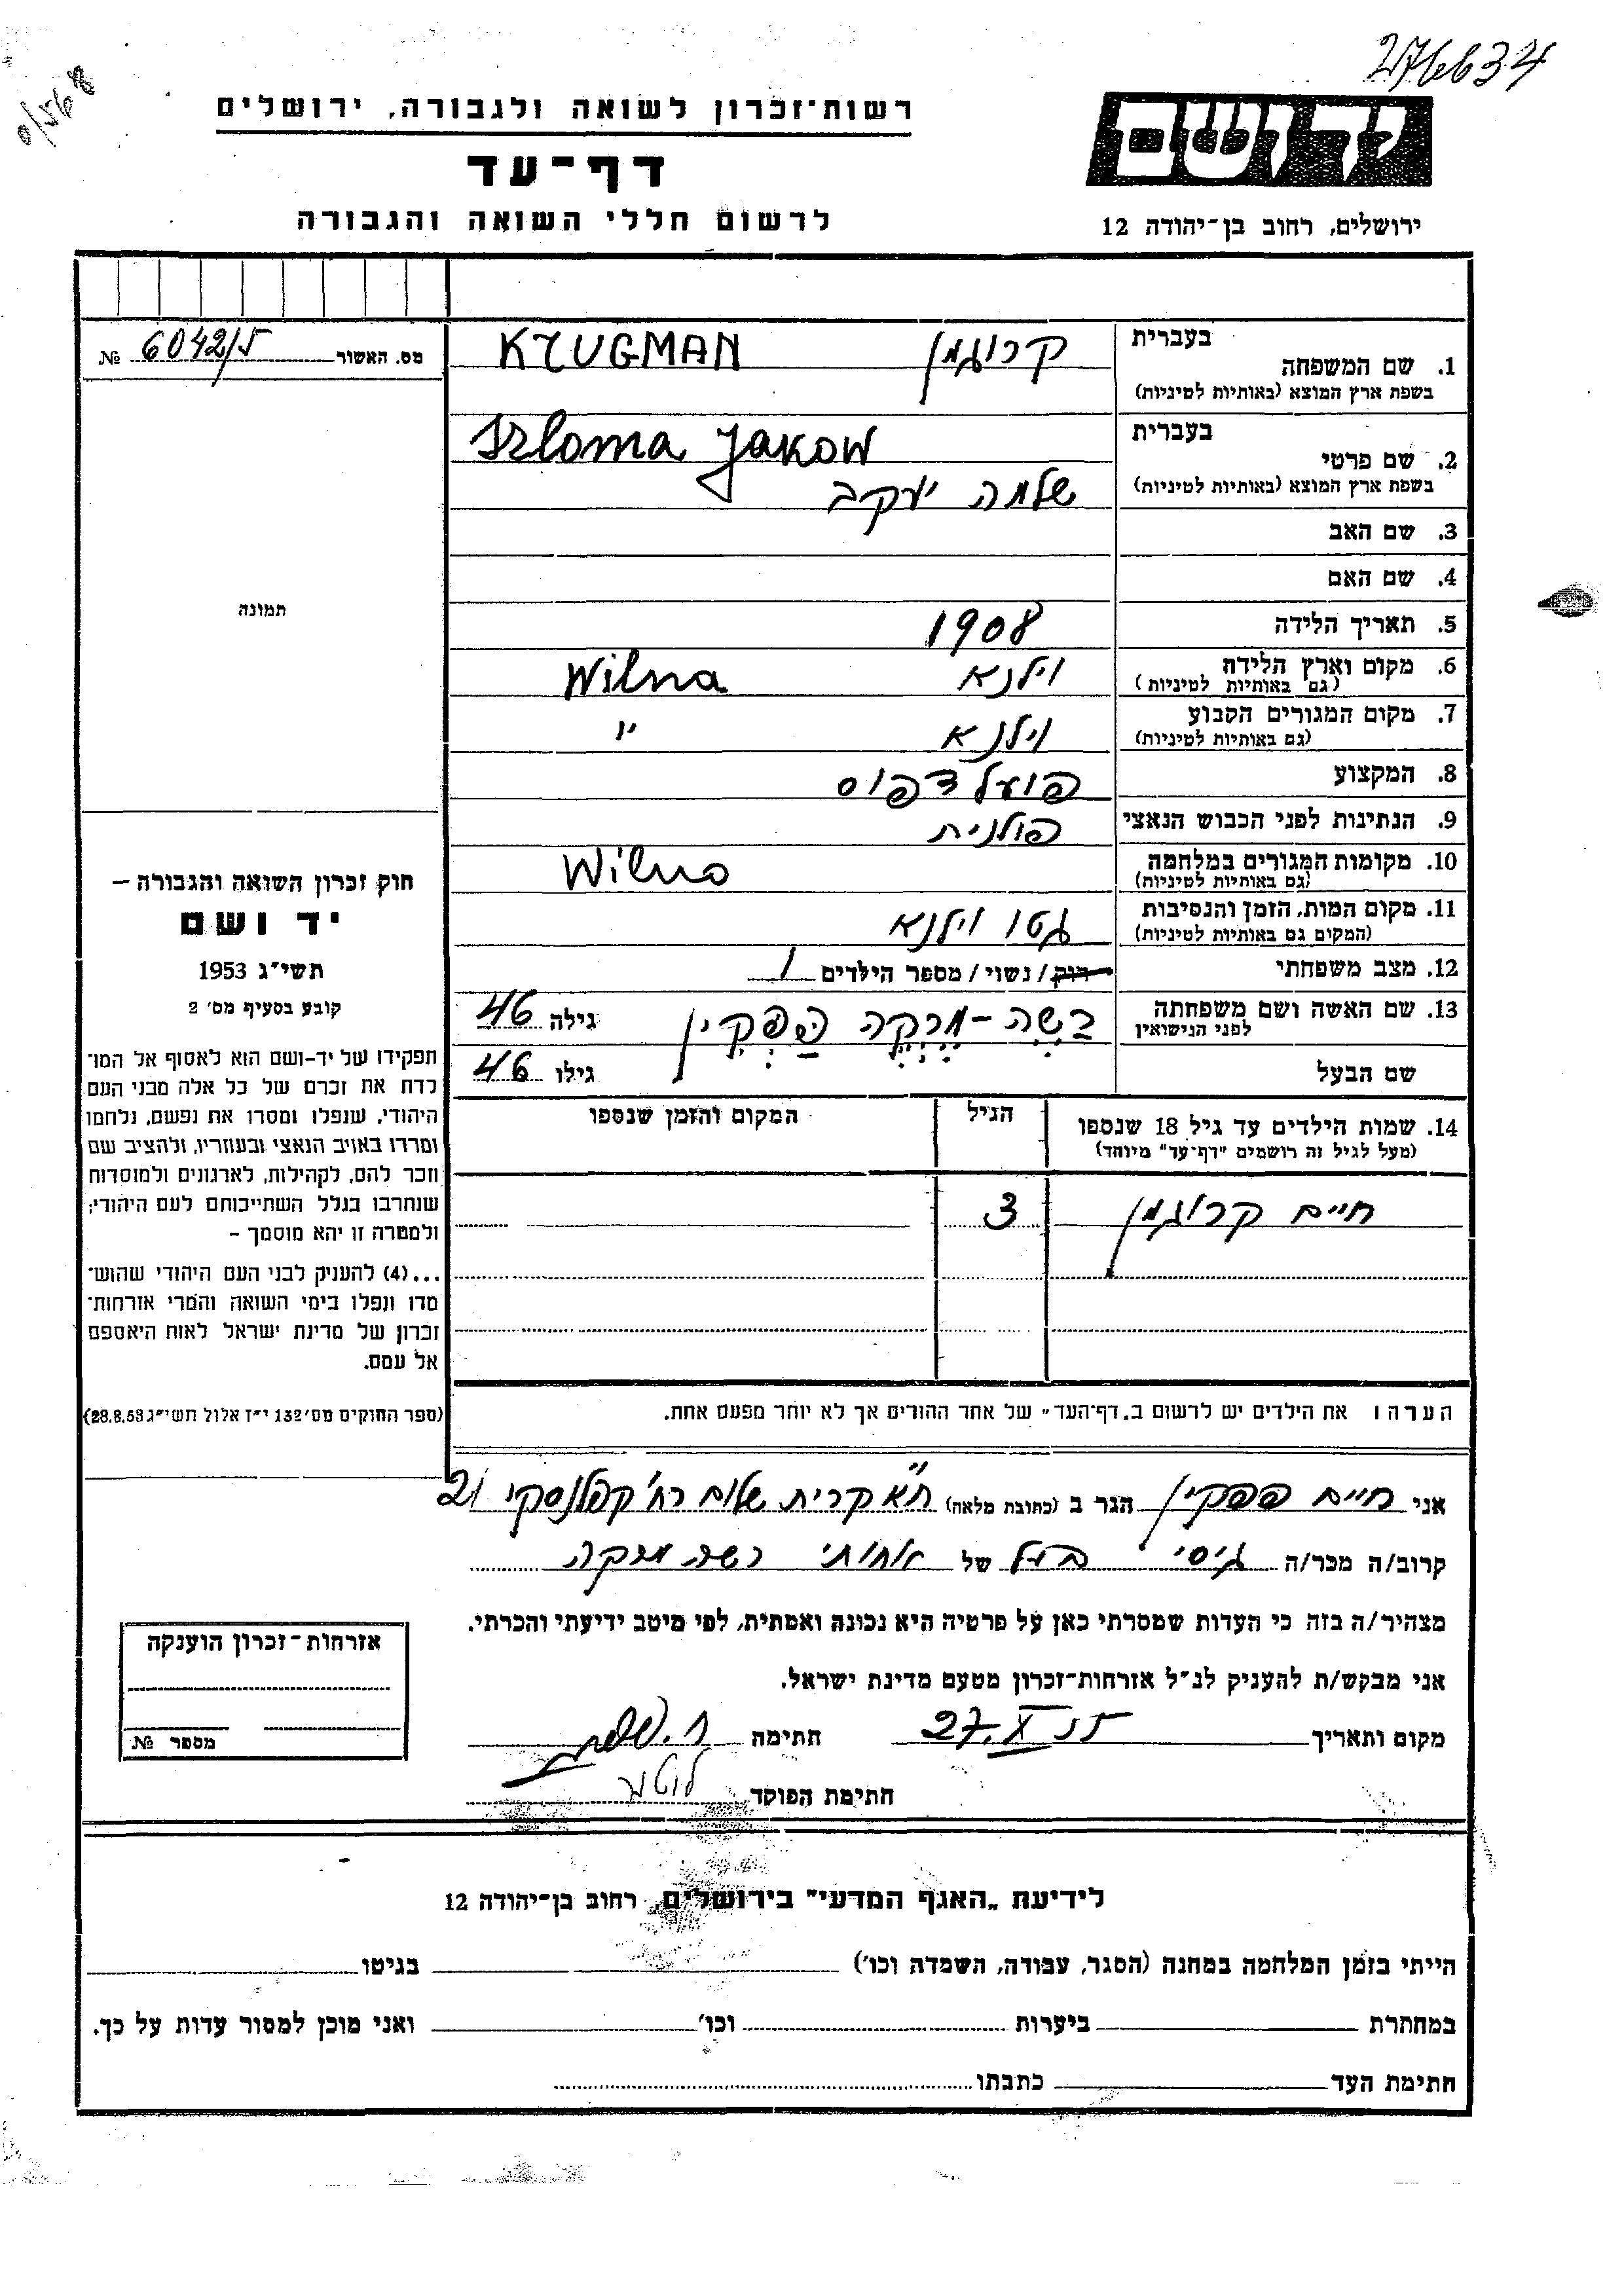 276634
0/568
רשות־זכרון לשואה ולגבורה, ירושלים
יד ושם
דף־עד
לרשום חללי השואה והגבורה
ירושלים, רחוב בן־יהודה 12
מס. האשור 6042/5 №
בעברית
1. שם המשפחה קרוגמן KRUGMAN
בשפת ארץ המוצא (באותיות לטיניות)
בעברית
Szloma Jakow
2. שם פרטי
בשפת ארץ המוצא (באותיות לטיניות) שלמה יעקב
3. שם האב
4. שם האם
תמונה
5. תאריך הלידה 1908
6. מקום וארץ הלידה וילנא Wilna
(גם באותיות לטיניות)
7. מקום המגורים הקבוע וילנא "
(גם באותיות לטיניות)
8. המקצוע פועל דפוס
9. הנתינות לפני הכבוש הנאצי פולנית
10. מקומות המגורים במלחמה Wilno
(גם באותיות לטיניות)
11. מקום המות, הזמן והנסיבות גטו וילנא
(המקום גם באותיות לטיניות)
12. מצב משפחתי רווק / נשוי / מספר הילדים 1
13. שם האשה ושם משפחתה בשה-מרקה גילה 46
לפני הנישואין
שם הבעל גילו 46
14. שמות הילדים עד גיל 18 שנספו הגיל המקום והזמן שנספו
(מעל לגיל זה רושמים "דף־עד" מיוחד)
חיים קרוגמן 3
הערה: את הילדים יש לרשום ב„דף־העד" של אחד ההורים אך לא יותר מפעם אחת.
חוק זכרון השואה והגבורה –
יד ושם
תשי"ג 1953
קובע בסעיף מס' 2
תפקידו של יד-ושם הוא לאסוף אל המו־
לדת את זכרם של כל אלה מבני העם
היהודי, שנפלו ומסרו את נפשם, נלחמו
ומרדו באויב הנאצי ובעוזריו, ולהציב שם
וזכר להם, לקהילות, לארגונים ולמוסדות
שנחרבו בגלל השתייכותם לעם היהודי;
ולמטרה זו יהא מוסמך –
...(4) להעניק לבני העם היהודי שהוש־
מדו ונפלו בימי השואה והמרי אזרחות־
זכרון של מדינת ישראל לאות היאספם
אל עמם.
(ספר החוקים מס' 132 י"ז אלול תשי"ג 28.8.53)
אני חיים הגר ב (כתובת מלאה) ת"א קרית שלום רח' קפלנסקי 21
קרוב/ה מכר/ה גיסי בעל של אחותי בשה מרקה
מצהיר/ה בזה כי העדות שמסרתי כאן על פרטיה היא נכונה ואמתית, לפי מיטב ידיעתי והכרתי.
אני מבקש/ת להעניק לנ"ל אזרחות־זכרון מטעם מדינת ישראל.
מקום ותאריך 27.X 55 חתימה
חתימת הפוקד
אזרחות־זכרון הוענקה
מספר №
לידיעת „האגף המדעי" בירושלים, רחוב בן־יהודה 12
הייתי בזמן המלחמה במחנה (הסגר, עבודה, השמדה וכו') בגיטו
במחתרת ביערות וכו' ואני מוכן למסור עדות על כך.
חתימת העד כתבתו